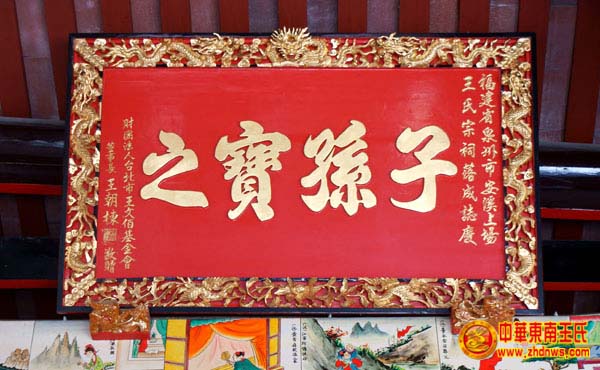 福建省泉州市安溪上場
王氏宗祠落成誌慶
子孫寶之
財團法人台北市王文伯基金會
董事長 王朝棟 敬贈
中華東南王氏
www.zhdnws.com